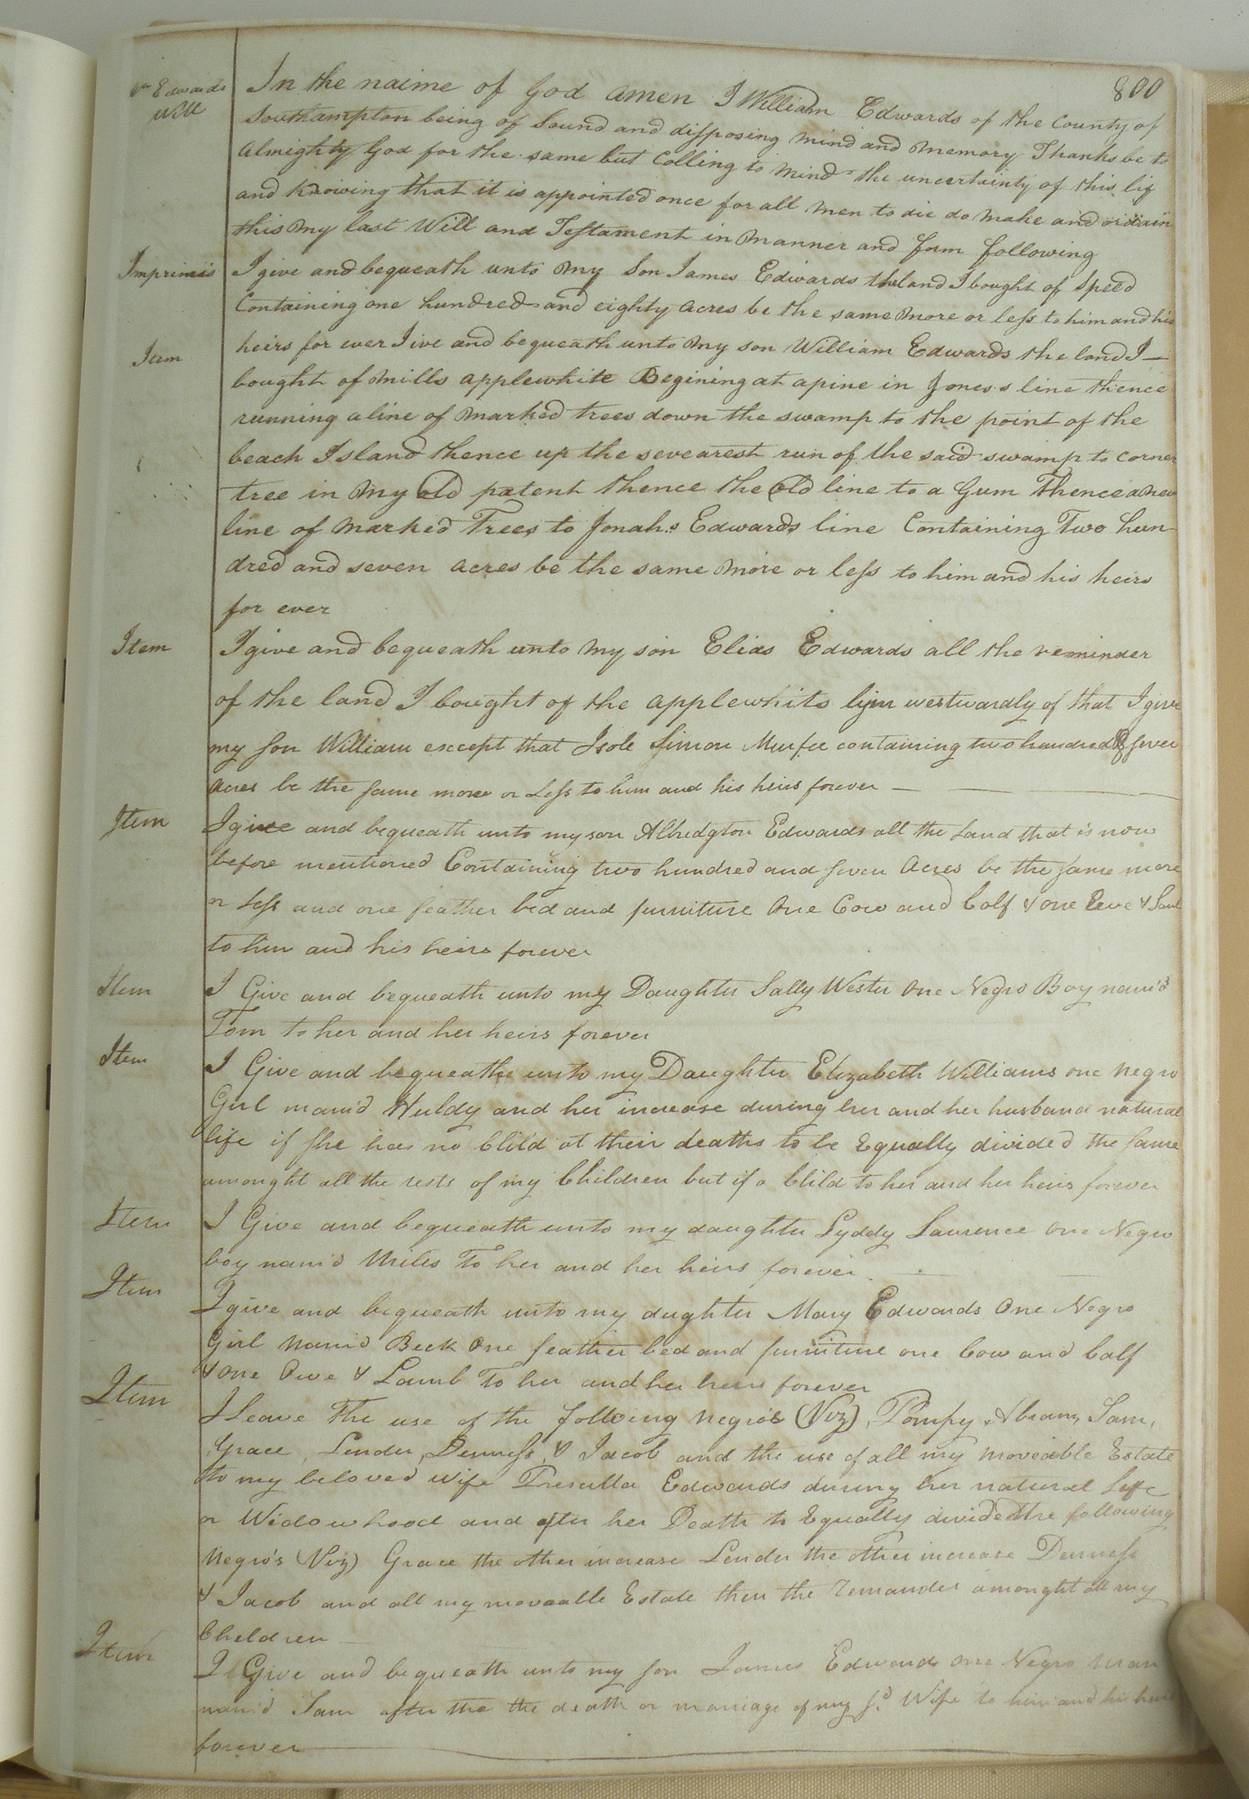 800
Wm Edwards
Will
In the naime of God amen I William Edwards of the County of
Southampton being of Sound and disposing mind and memory Thanks be to
Almighty God for the same but Colling to mind the uncertainty of this lif
and Knowing that it is appointed once for all men to die do make and ordain
this my last Will and Testament in manner and form following
Imprimis I give and bequeath unto my Son James Edwards the land I bought of Speed
Containing one hundred and eighty acres be the same more or less to him and his
Item heirs for ever I ive and bequeath unto my son William Edwards the land I
bought of mills applewhite Begining at a pine in Jones's line thence
running a line of marked trees down the swamp to the point of the
beach Island thence up the sevearest run of the said swamp to corner
tree in my old patent thence the old line to a Gum Thence a new
line of marked Trees to Jonahs Edwards line Containing Two hun-
dred and seven acres be the same more or less to him and his heirs
for ever
Item I give and bequeath unto my son Elias Edwards all the reminder
of the land I bought of the applewhits lyin westwardly of that I give
my son William except that I sole Simon Murfee containing two hundred & seven
acres be the same more or Less to him and his heirs forever
Item I give and bequeath unto my son Albridgton Edwards all the Land that is now
before mentioned Containing two hundred and seven Acres be the same more
or Less and one feather bed and furniture One Cow and Calf & one Ewe & Lamb
to him and his heirs forever
Item I Give and bequeath unto my Daughter Sally Wester One Negro Boy nam'd
Tom to her and her heirs forever
Item I Give and bequeathe unto my Daughter Elizabeth Williams one negro
Girl nam'd Huldy and her increase during her and her husband natural
life if she has no Child at their deaths to be Equally divided the same
amonght all the rests of my Children but if a Child to her and her heirs forever
Item I Give and bequeath unto my daughter Lyddy Laurence one Negro
boy nam'd Miles To her and her heirs forever
Item I give and bequeath unto my daughter Mary Edwards One Negro
Girl Nam'd Beck One feather bed and furniture one Cow and Calf
& one Owe & Lamb To her and her heirs forever
Item I Leave The use of the following negro's (Viz) Pompy Abram, Sam,
Grace, Lender, Denness, & Jacob and the use of all my moveable Estate
to my beloved wife Prescilla Edwards during her natural Life
or Widowhood and after her Death to Equally divided the following
Negro's (Viz) Grace the other increase Lender the other increase Denness
& Jacob and all my moveable Estate then the Remander amonght all my
Children
Item I Give and bequeath unto my son James Edwards one Negro man
nam'd Sam after the the death or marriage of my sd Wife to him and his heirs
forever